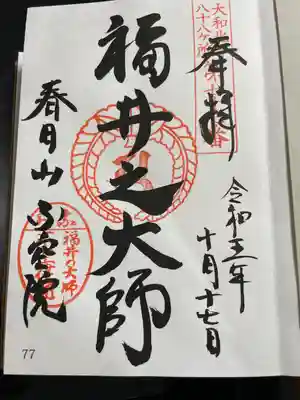 大和北部
八十八ヶ所
奉拝
令和五年
十月十七日
福井之大師
春日山不空院
福井の大師
77